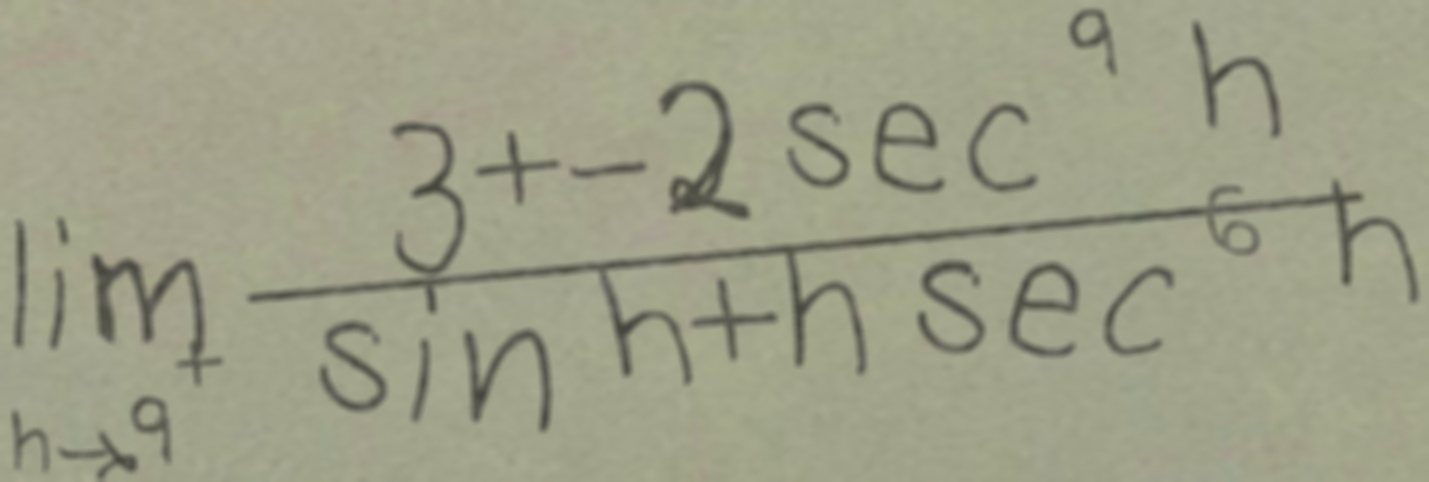 \lim_{h \to 9^+} \frac{3 + -2 \sec^9 h}{\sin h + h \sec^6 h}